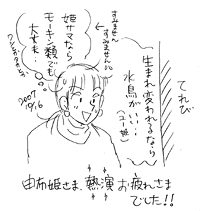 てれび
生まれ変われるなら
水鳥がいい…
(ユー姫)
すみません
すみません…
姫サマなら
モーキン類でも
大丈夫。
2007
10.16
由布姫さま、熱演お疲れさま
でした!!